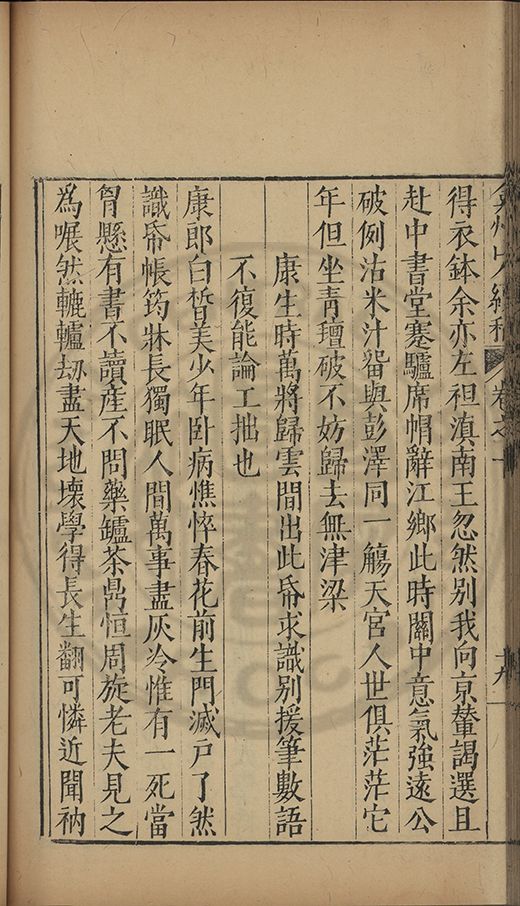 得衣鉢余亦左袒滇南王忽然別我向京輦謁選且
赴中書堂蹇驢席帽辭江鄉此時關中意氣強遠公
破例沽米汁留與彭澤同一觴天宮人世俱茫茫它
年但坐青璮破不妨歸去無津梁
康生時萬將歸雲間出此帋求識別援筆數語
不復能論工拙也
康郎白皙美少年臥病憔悴春花前生門滅戶了然
識帋帳筠牀長獨眠人間萬事盡灰冷惟有一死當
胷懸有書不讀産不問藥鑪茶鼎恒周旋老夫見之
為喂然轆轤劫盡天地壞學得長生翻可憐近聞衲